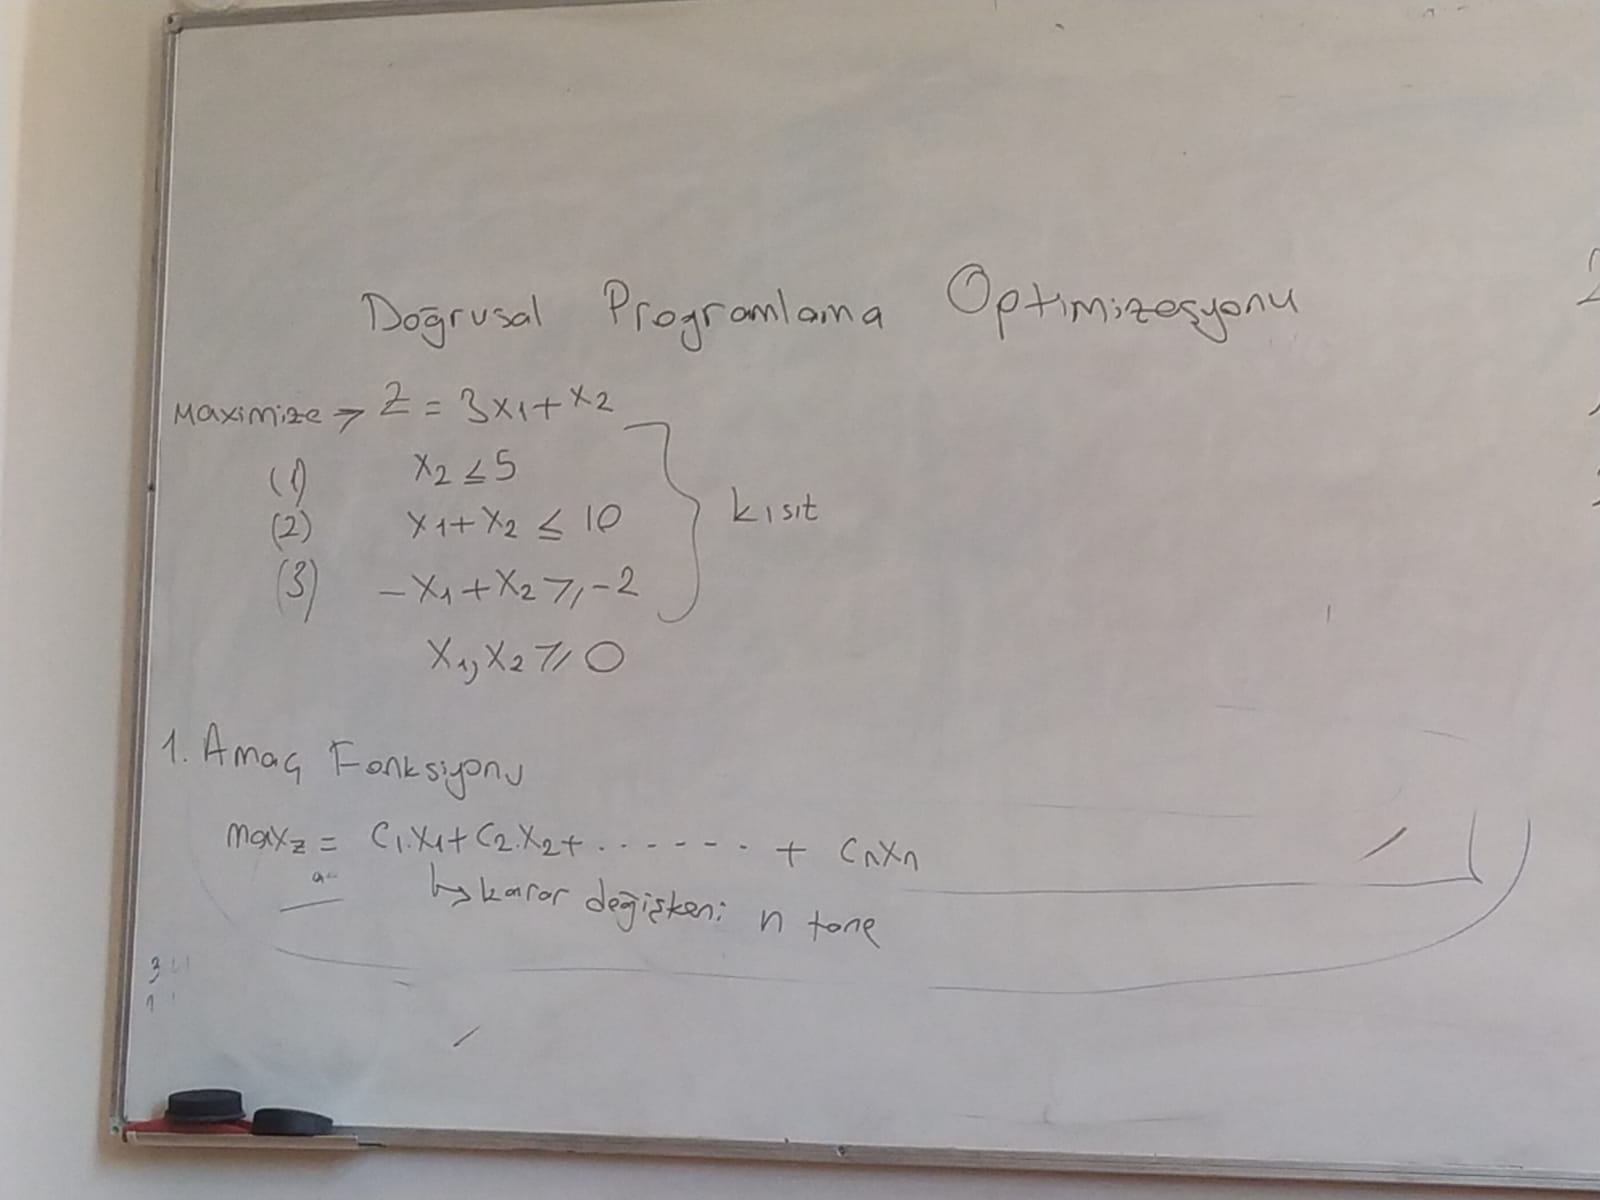 Doğrusal Programlama Optimizasyonu
Maximize → Z = 3x1 + x2
(1) x2 ≤ 5
(2) x1 + x2 ≤ 10
(3) -x1 + x2 ≥ -2
kısıt
x1, x2 ≥ 0
1. Amaç Fonksiyonu
maxz = C1.X1 + C2.X2 + ........ + CnXn
↳ karar değişkeni n tane